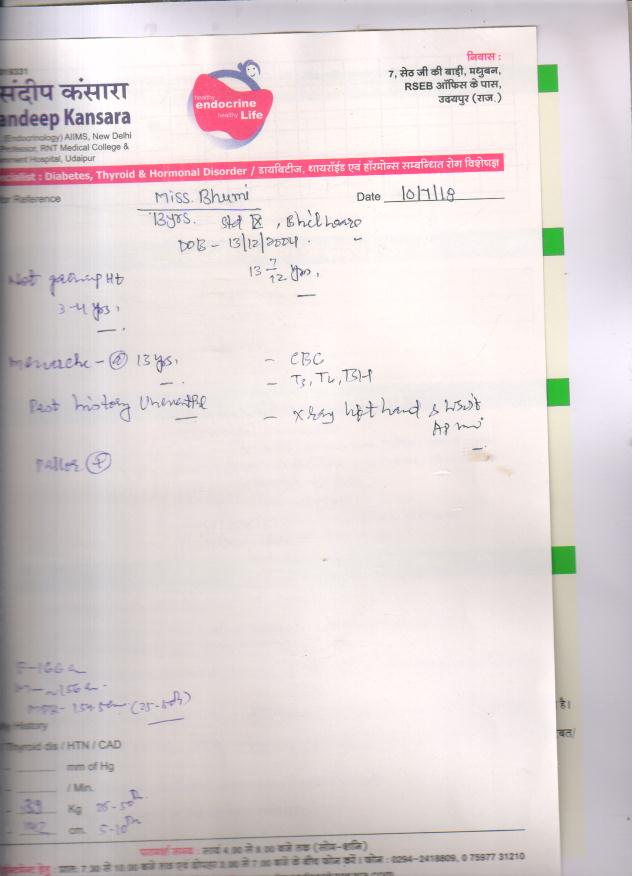 संदीप कंसारा
andeep Kansara
(Endocrinology) AIIMS, New Delhi
Professor, RNT Medical College &
rnment Hospital, Udaipur
healthy
endocrine
healthy Life
निवास :
7, सेठ जी की बाड़ी, मधुबन,
RSEB ऑफिस के पास,
उदयपुर (राज.)
cialist : Diabetes, Thyroid & Hormonal Disorder / डायबिटीज, थायरॉईड एवं हॉरमोन्स सम्बन्धित रोग विशेषज्ञ
for Reference
Miss. Bhumi
Date 10/7/18
13yrs. Std IX , Bhilwara
DOB - 13/12/2004.
13 7/12 yrs.
Not gaining Ht
3-4 yrs.
Menarche - @ 13 yrs.
- CBC
- T3, T4, TSH
Past history Uneventful
- X ray left hand & wrist
AP
Pallor +
F-166
M- 156
(25-50th)
History
Thyroid dis / HTN / CAD
mm of Hg
/ Min.
39 Kg 25-50th
142 cm. 5-10th
परामर्श समय : सायं 4.00 से 8.00 बजे तक (सोम-शनि)
हेतु : प्रातः 7.30 से 10.00 बजे तक एवं दोपहर 3.00 से 7.00 बजे के बीच फोन करें। फोन : 0294-2418809, 0 75977 31210
है।